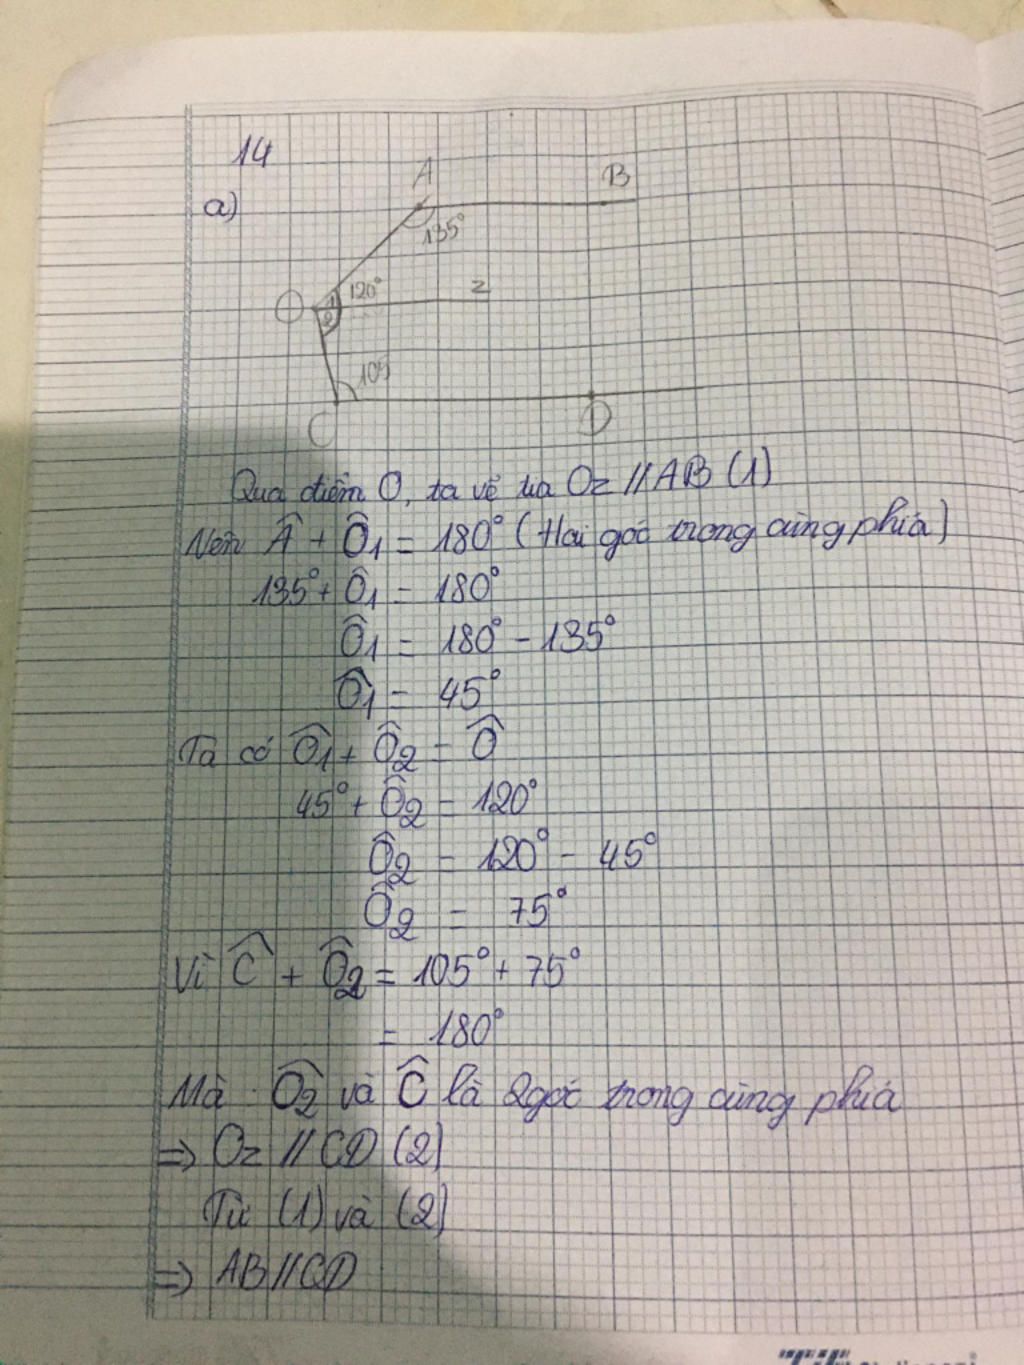 14
a)
A
B
135°
120°
z
O
1
2
105
C
D
Qua điểm O, ta vẽ tia Oz // AB (1)
Nên Â + Ô1 = 180° (Hai góc trong cùng phía)
135° + Ô1 = 180°
Ô1 = 180° - 135°
Ô1 = 45°
Ta có Ô1 + Ô2 = Ô
45° + Ô2 = 120°
Ô2 = 120° - 45°
Ô2 = 75°
Vì Ĉ + Ô2 = 105° + 75°
= 180°
Mà : Ô2 và Ĉ là 2 góc trong cùng phía
=> Oz // CD (2)
Từ (1) và (2)
=> AB // CD